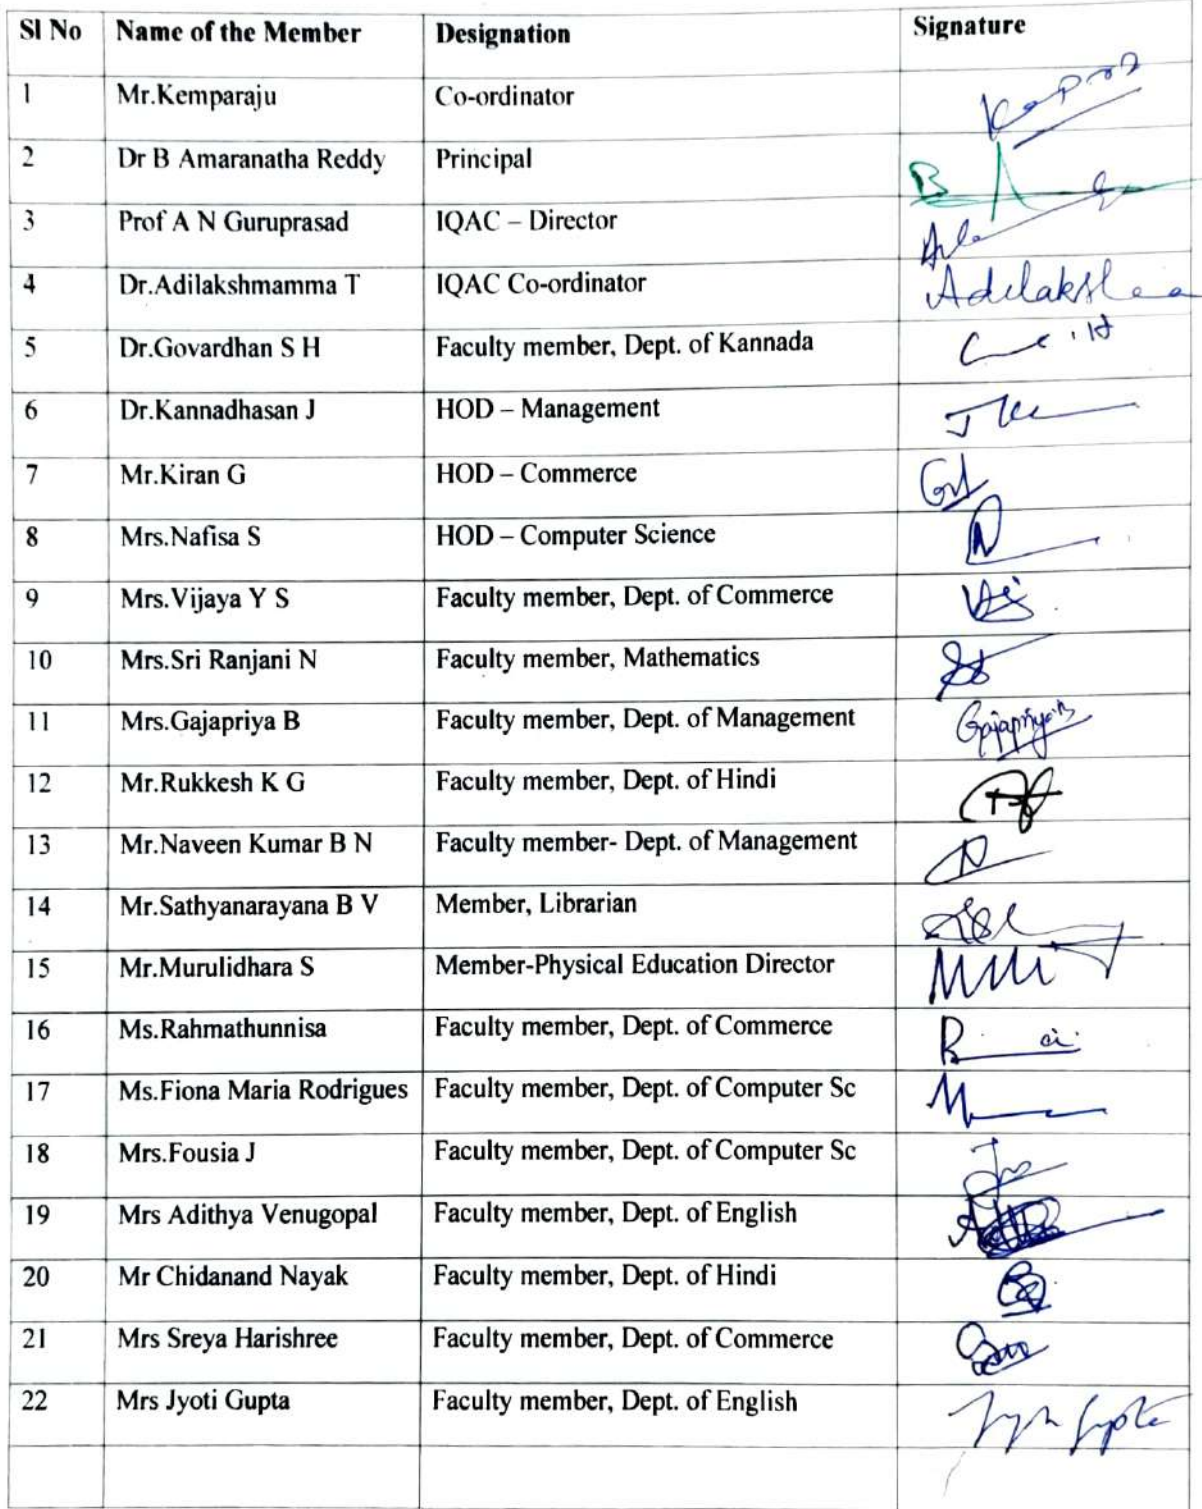 Sl No Name of the Member Designation Signature
1 Mr.Kemparaju Co-ordinator
2 Dr B Amaranatha Reddy Principal
3 Prof A N Guruprasad IQAC – Director
4 Dr.Adilakshmamma T IQAC Co-ordinator
5 Dr.Govardhan S H Faculty member, Dept. of Kannada
6 Dr.Kannadhasan J HOD – Management
7 Mr.Kiran G HOD – Commerce
8 Mrs.Nafisa S HOD – Computer Science
9 Mrs.Vijaya Y S Faculty member, Dept. of Commerce
10 Mrs.Sri Ranjani N Faculty member, Mathematics
11 Mrs.Gajapriya B Faculty member, Dept. of Management Gajapriya.B
12 Mr.Rukkesh K G Faculty member, Dept. of Hindi
13 Mr.Naveen Kumar B N Faculty member- Dept. of Management
14 Mr.Sathyanarayana B V Member, Librarian
15 Mr.Murulidhara S Member-Physical Education Director
16 Ms.Rahmathunnisa Faculty member, Dept. of Commerce
17 Ms.Fiona Maria Rodrigues Faculty member, Dept. of Computer Sc
18 Mrs.Fousia J Faculty member, Dept. of Computer Sc
19 Mrs Adithya Venugopal Faculty member, Dept. of English
20 Mr Chidanand Nayak Faculty member, Dept. of Hindi
21 Mrs Sreya Harishree Faculty member, Dept. of Commerce
22 Mrs Jyoti Gupta Faculty member, Dept. of English